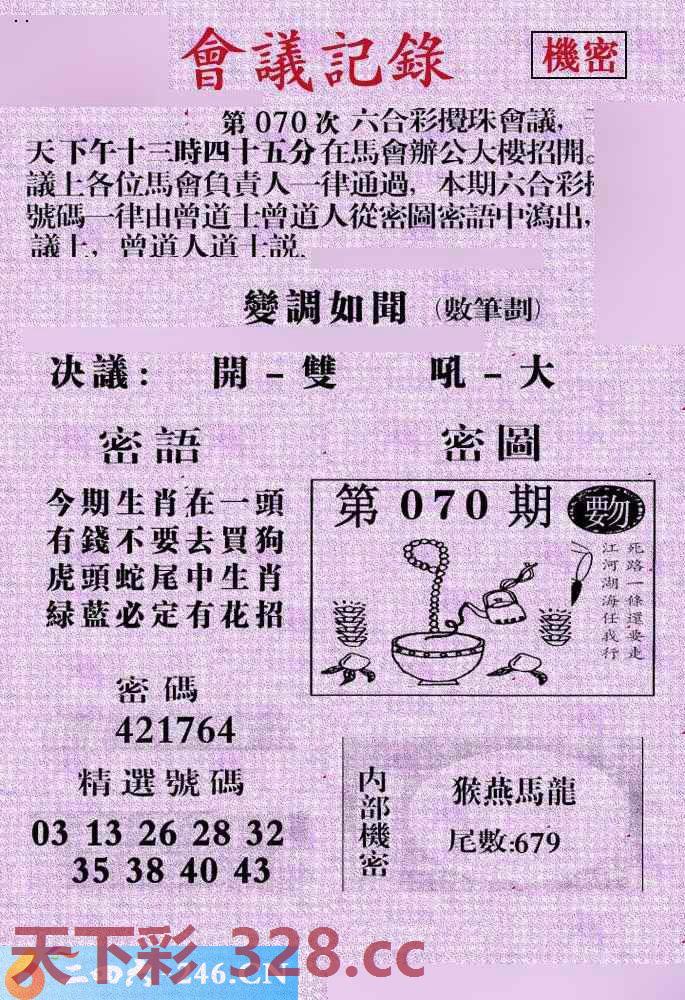 會議記錄
機密
第 070 次 六合彩攪珠會議,
天下午十三時四十五分在馬會辦公大樓招開。
議上各位馬會負責人一律通過, 本期六合彩
號碼一律由曾道士曾道人從密圖密語中瀉出,
議上, 曾道人道士説
變調如聞 (數筆劃)
决議: 開 - 雙 吼 - 大
密語
今期生肖在一頭
有錢不要去買狗
虎頭蛇尾中生肖
緑藍必定有花招
密圖
第 070 期
死路一條還要走
江河湖海任我行
密碼
421764
精選號碼
03 13 26 28 32
35 38 40 43
内部機密
猴燕馬龍
尾數:679
天下彩 328.cc
246.CN